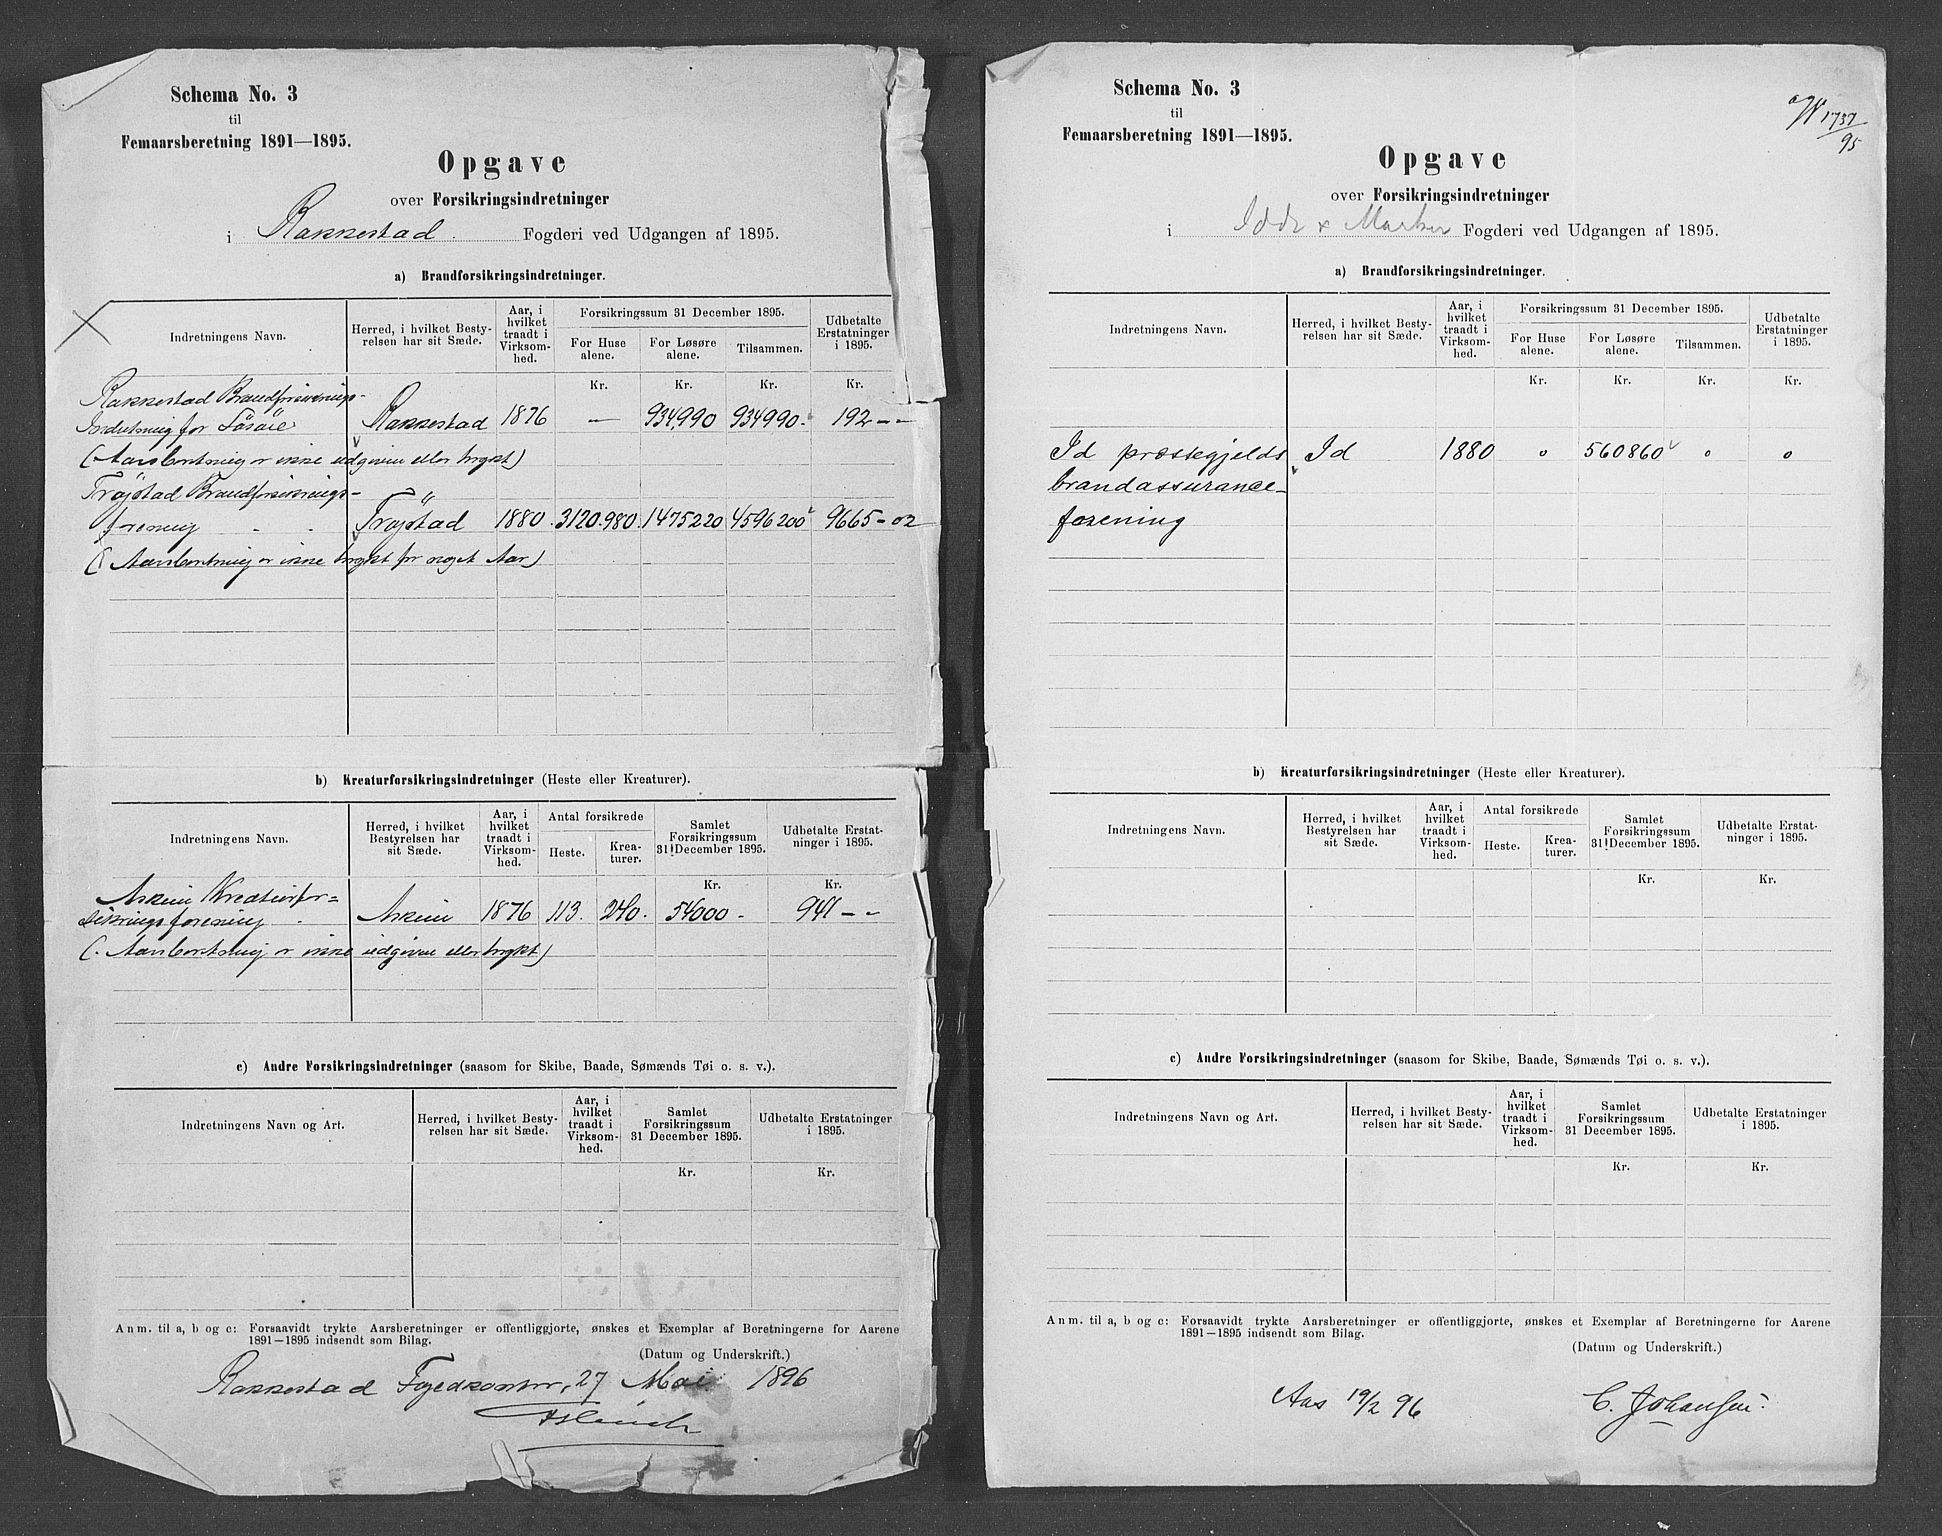 Schema No. 3
til
Femaarsberetning 1891—1895.
Opgave
over Forsikringsindretninger
i Rakkestad Fogderi ved Udgangen af 1895.
a) Brandforsikringsindretninger.
Indretningens Navn.
Herred, i hvilket Besty-
relsen har sit Sæde.
Aar, i
hvilket
traadt i
Virksom-
hed.
Forsikringssum 31 December 1895.
For Huse
alene.
For Løsøre
alene.
Tilsammen.
Udbetalte
Erstatninger
i 1895.
Kr. Kr. Kr. Kr.
Rakkestad Brandforsikrings-
Indretning for Løsøre Rakkestad 1876 — 934,990 934990. 192 - -
(Aarsberetning er ikke udgiven eller trykt)
Trøjstad Brandforsikrings-
forening Trøjstad 1880. 3120.980. 1475220 4596200 9665 - 02
(Aarsberetning er ikke trykt for noget Aar)
b) Kreaturforsikringsindretninger (Heste eller Kreaturer).
Indretningens Navn.
Herred, i hvilket
Bestyrelsen har
sit Sæde.
Aar, i
hvilket
traadt i
Virksom-
hed.
Antal forsikrede
Heste.
Krea-
turer.
Samlet
Forsikringssum
31 December 1895.
Udbetalte Erstat-
ninger i 1895.
Kr. Kr.
Askim Kreaturfor=
sikringsforening Askim 1876 113. 240. 54000 - 941 - -
(Aarsberetning er ikke udgiven eller trykt)
c) Andre Forsikringsindretninger (saasom for Skibe, Baade, Sømænds Tøi o. s. v.).
Indretningens Navn og Art.
Herred, i hvilket Besty-
relsen har sit Sæde.
Aar, i
hvilket
traadt i
Virksom-
hed.
Samlet
Forsikringssum
31 December 1895.
Udbetalte Erstatninger
i 1895.
Kr. Kr.
Anm. til a, b og c: Forsaavidt trykte Aarsberetninger er offentliggjorte, ønskes et Exemplar af Beretningerne for Aarene
1891—1895 indsendt som Bilag.
(Datum og Underskrift.)
Rakkestad Fogedkontor, 27 Mai 1896
Schema No. 3
til
Femaarsberetning 1891—1895.
1737
95
Opgave
over Forsikringsindretninger
i Idde & Marker Fogderi ved Udgangen af 1895.
a) Brandforsikringsindretninger.
Indretningens Navn.
Herred, i hvilket Besty-
relsen har sit Sæde.
Aar, i
hvilket
traadt i
Virksom-
hed.
Forsikringssum 31 December 1895.
For Huse
alene.
For Løsøre
alene.
Tilsammen.
Udbetalte
Erstatninger
i 1895.
Kr. Kr. Kr. Kr.
Id præstegjelds Id 1880 " 560860 " "
brandassurance-
forening
b) Kreaturforsikringsindretninger (Heste eller Kreaturer).
Indretningens Navn.
Herred, i hvilket
Bestyrelsen har
sit Sæde.
Aar, i
hvilket
traadt i
Virksom-
hed.
Antal forsikrede
Heste.
Krea-
turer.
Samlet
Forsikringssum
31 December 1895.
Udbetalte Erstat-
ninger i 1895.
Kr. Kr.
c) Andre Forsikringsindretninger (saasom for Skibe, Baade, Sømænds Tøi o. s. v.).
Indretningens Navn og Art.
Herred, i hvilket Besty-
relsen har sit Sæde.
Aar, i
hvilket
traadt i
Virksom-
hed.
Samlet
Forsikringssum
31 December 1895.
Udbetalte Erstatninger
i 1895.
Kr. Kr.
Anm. til a, b og c: Forsaavidt trykte Aarsberetninger er offentliggjorte, ønskes et Exemplar af Beretningerne for Aarene
1891—1895 indsendt som Bilag.
(Datum og Underskrift.)
Aas 19/2 96 C. Johansen